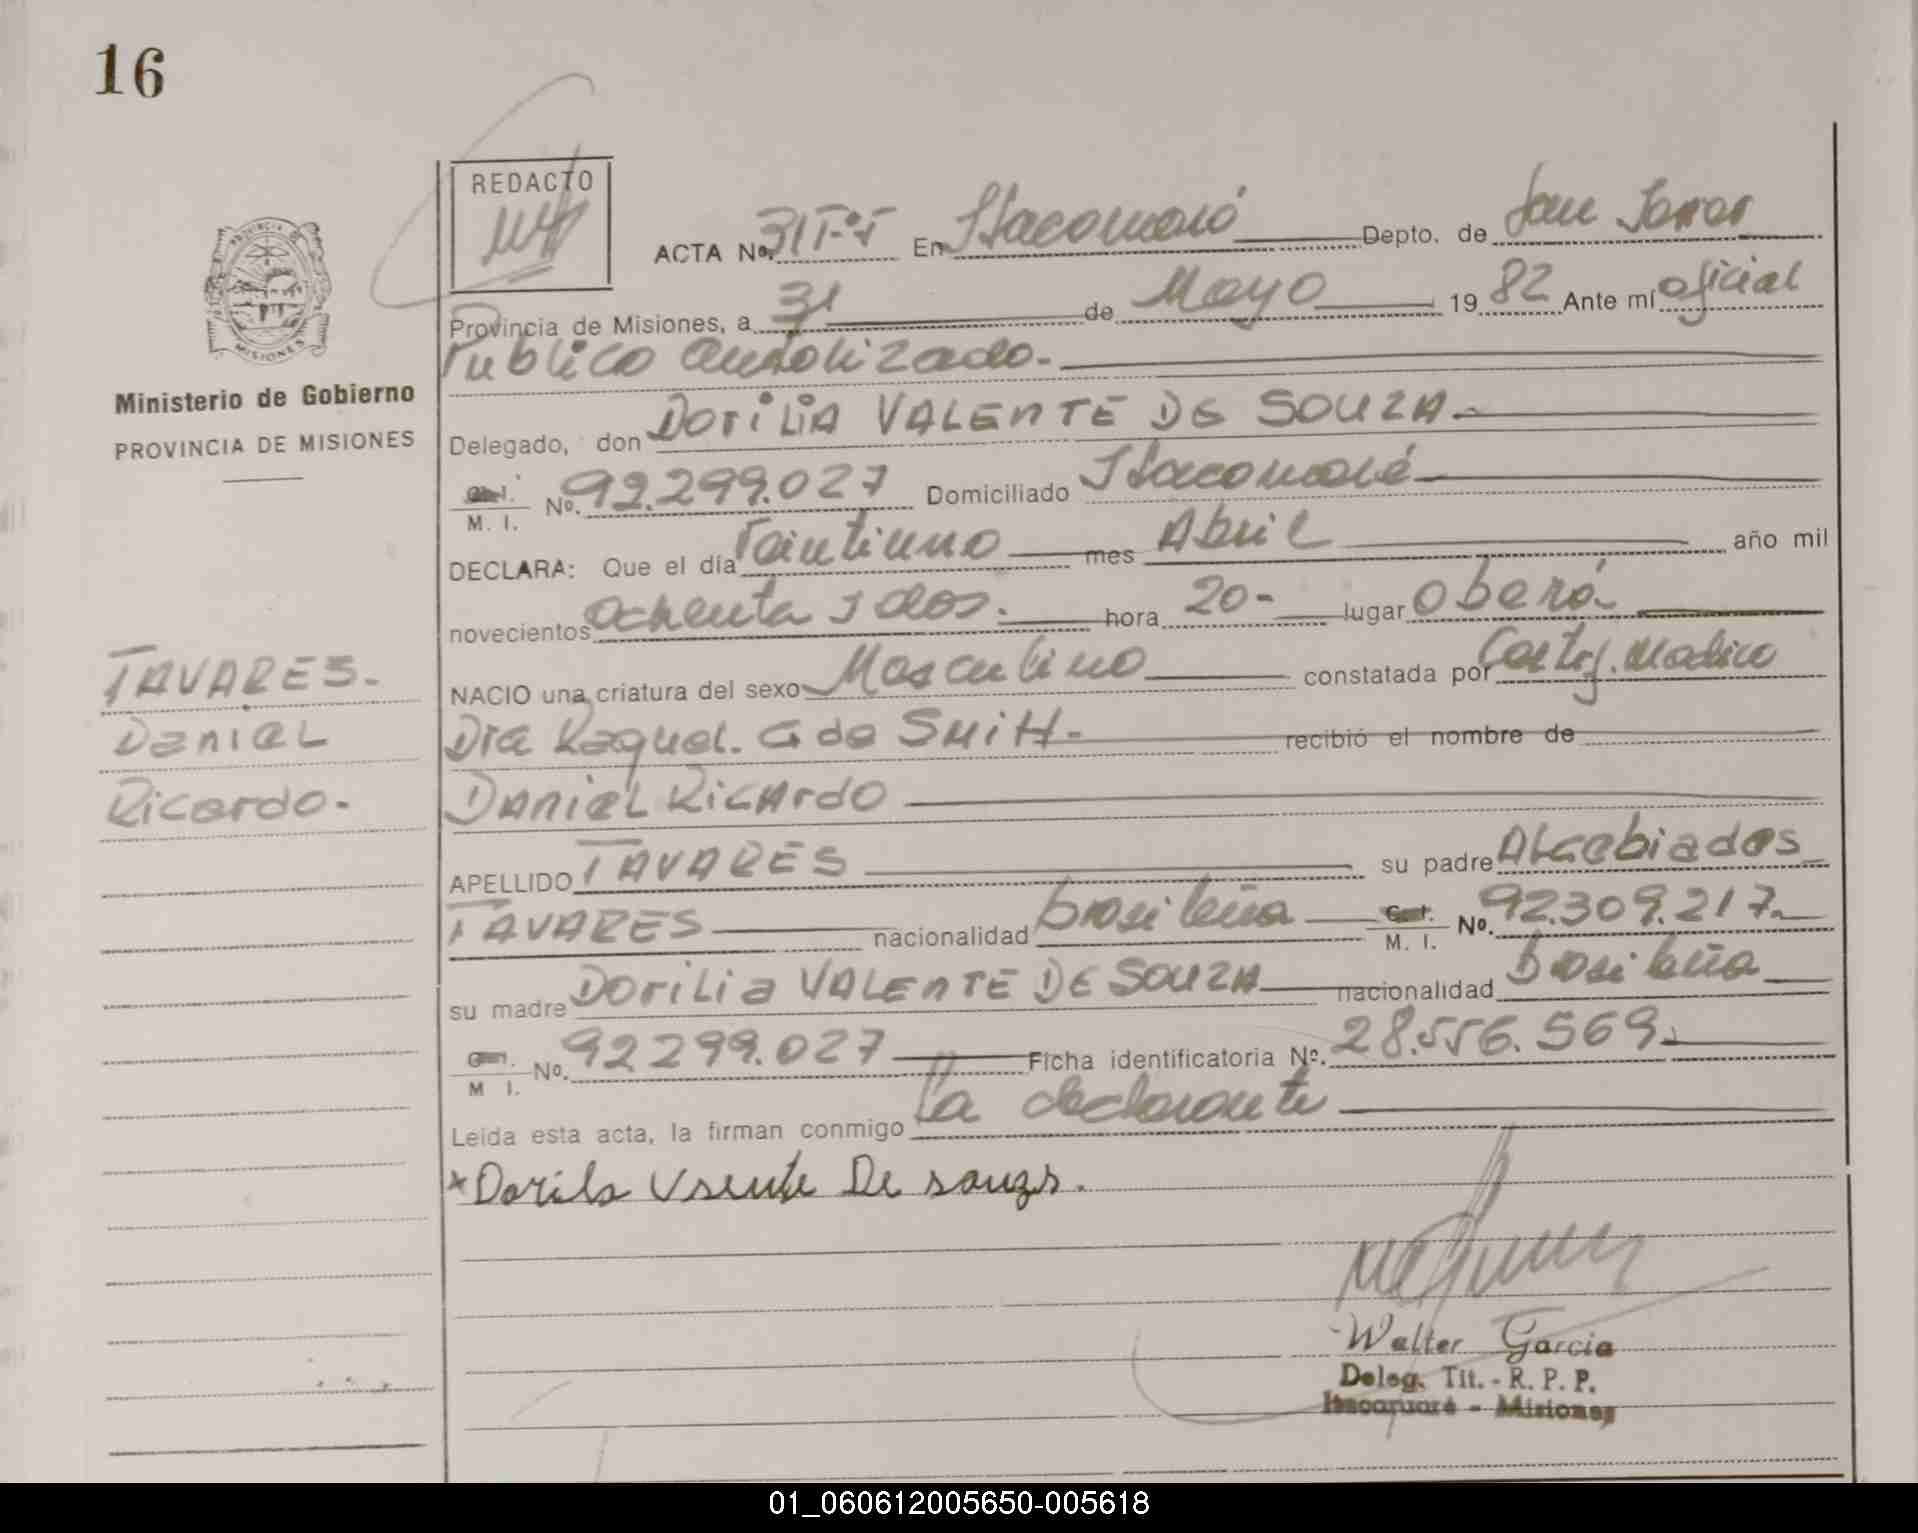 16
REDACTO
PROVINCIA DE
MISIONES
Ministerio de Gobierno
PROVINCIA DE MISIONES
ACTA No. 31 En Itacaruaré Depto. de San Javier
Provincia de Misiones, a 31 de Mayo 19 82 Ante mí oficial
Publico autorizado.
Delegado, don DoriLiA VALEnTE DE SOUZA.
M. I. No. 92.299.027 Domiciliado Itacaruaré
DECLARA: Que el día veintiuno mes Abril año mil
novecientos ochenta y dos. hora 20- lugar Oberá.
NACIO una criatura del sexo Masculino constatada por Certf. Medico
Dra Raquel. G de SmitH. recibió el nombre de
DaniEL RicArdo
APELLIDO TAVARES su padre ALcebiades
TAVARES nacionalidad brasileña M. I. No. 92.309.217.
su madre DoriLia VALEnTE DE SOUZA nacionalidad brasileña
M I. No. 92299.027 Ficha identificatoria No. 28.556.569.
Leída esta acta, la firman conmigo La declarante
TAVARES.
DanieL
Ricardo.
De souza.
Walter Garcia
Deleg. Tit. - R. P. P.
Itacaruaré - Misiones
01_060612005650-005618